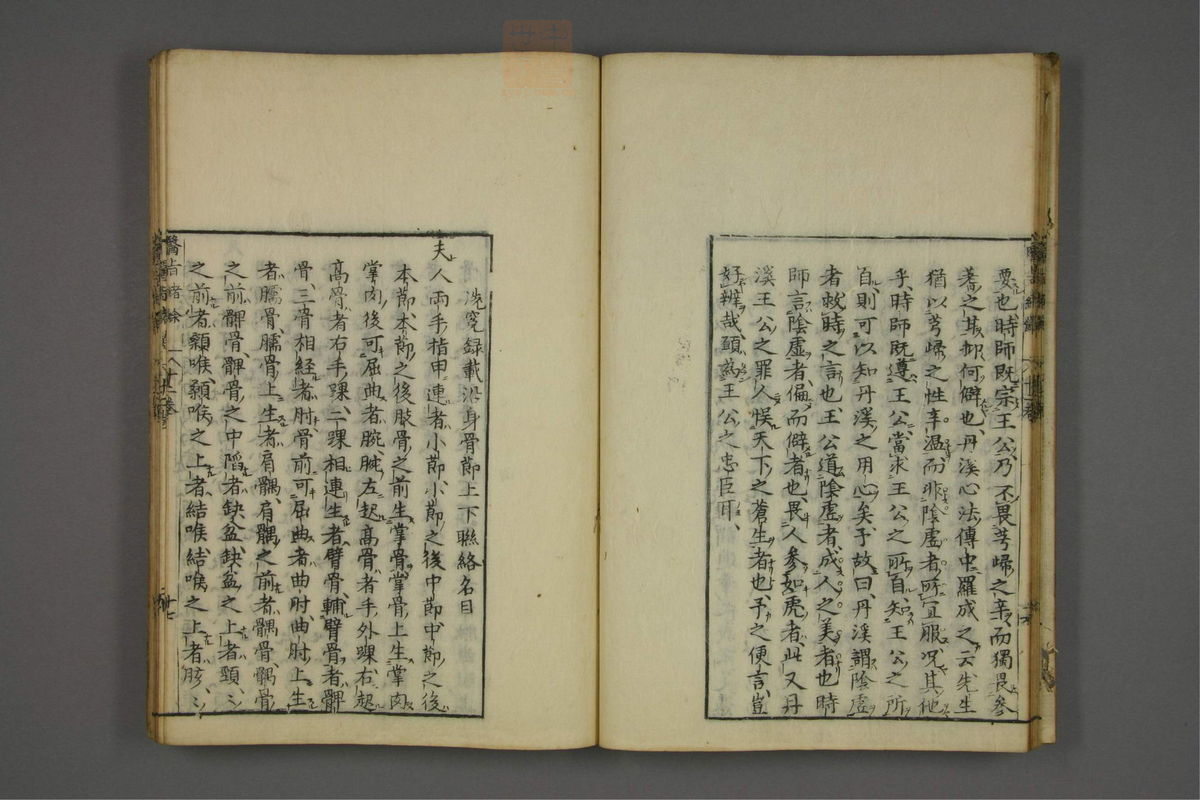 要也時師既宗王公乃不畏芎歸之辛而獨畏參
蓍之甘抑何僻也丹溪心法傳中羅成之云先生
猶以芎歸之性辛温而非陰虛者所宜服况其他
乎時師既遵王公當求王公之所自知王公之所
自則可以知丹溪之用心矣予故曰丹溪謂陰虛
者救時之言也王公道陰虛者成人之美者也時
師言陰虛者偏而僻者也畏人參如虎者此又丹
溪王公之罪人悞天下之蒼生者也予之便言豈
好辨哉願爲王公之忠臣耳
洗冤録載沿身骨節上下聯絡名目
夫人兩手指甲連者小節小節之後中節中節之後
本節本節之後肢骨之前生掌骨掌骨上生掌肉
掌肉後可屈曲者腕腕左起高骨者手外踝右起
高骨者右手踝二踝相連生者臂骨輔臂骨者髀
骨三骨相経者肘骨前可屈曲者曲肘曲肘上生
者臑骨臑骨上生者肩髃肩髃之前者髃骨髃骨
之前髀骨髀骨之中陷者缺盆缺盆之上者頸〻
之前者顙喉顙喉之上者結喉結喉之上者胲〻
醫旨緒餘 八十二巻 十七